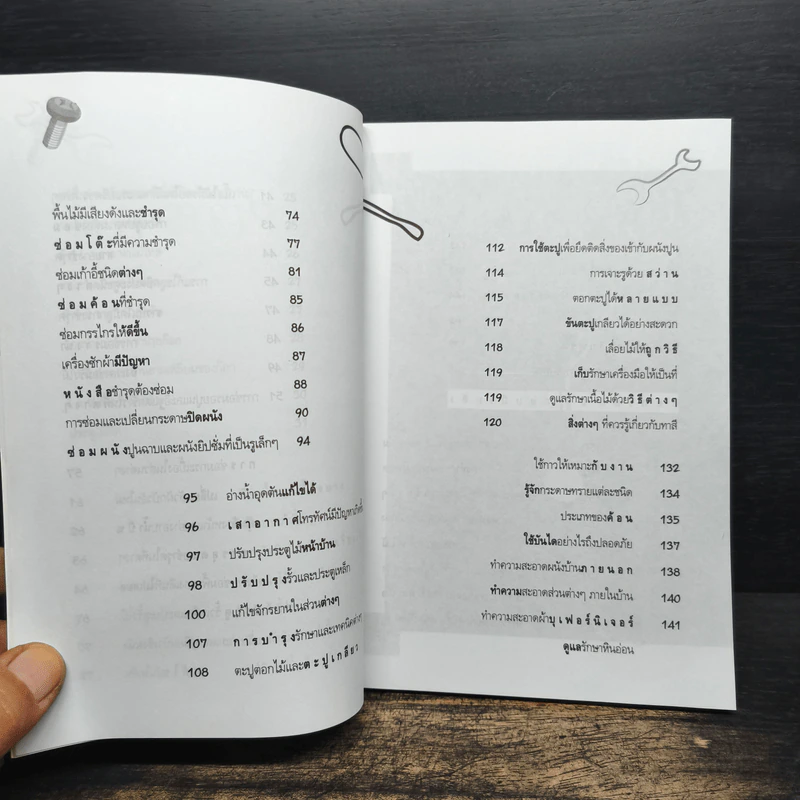 พื้นไม้มีเสียงดังและชำรุด 74
ซ่อมโต๊ะที่มีความชำรุด 77
ซ่อมเก้าอี้ชนิดต่างๆ 81
ซ่อมค้อนที่ชำรุด 85
ซ่อมกรรไกรให้ดีขึ้น 86
เครื่องซักผ้ามีปัญหา 87
หนังสือชำรุดต้องซ่อม 88
การซ่อมและเปลี่ยนกระดาษปิดผนัง 90
ซ่อมผนังปูนฉาบและผนังยิปซั่มที่เป็นรูเล็กๆ 94
95 อ่างน้ำอุดตันแก้ไขได้
96 เสาอากาศโทรทัศน์มีปัญหา
97 ปรับปรุงประตูไม้หน้าบ้าน
98 ปรับปรุงรั้วและประตูเหล็ก
100 แก้ไขจักรยานในส่วนต่างๆ
107 การบำรุงรักษาและเทคนิคต่างๆ
108 ตะปูตอกไม้และตะปูเกลียว
112 การใช้ตะปูเพื่อยึดติดสิ่งของเข้ากับผนังปูน
114 การเจาะรูด้วยสว่าน
115 ตอกตะปูได้หลายแบบ
117 ขันตะปูเกลียวได้อย่างสะดวก
118 เลื่อยไม้ให้ถูกวิธี
119 เก็บรักษาเครื่องมือให้เป็นที่
119 ดูแลรักษาเนื้อไม้ด้วยวิธีต่างๆ
120 สิ่งต่างๆ ที่ควรรู้เกี่ยวกับทาสี
ใช้กาวให้เหมาะกับงาน 132
รู้จักกระดาษทรายแต่ละชนิด 134
ประเภทของค้อน 135
ใช้บันไดอย่างไรถึงปลอดภัย 137
ทำความสะอาดผนังบ้านภายนอก 138
ทำความสะอาดส่วนต่างๆ ภายในบ้าน 140
ทำความสะอาดผ้าบุเฟอร์นิเจอร์ 141
ดูแลรักษาหินอ่อน